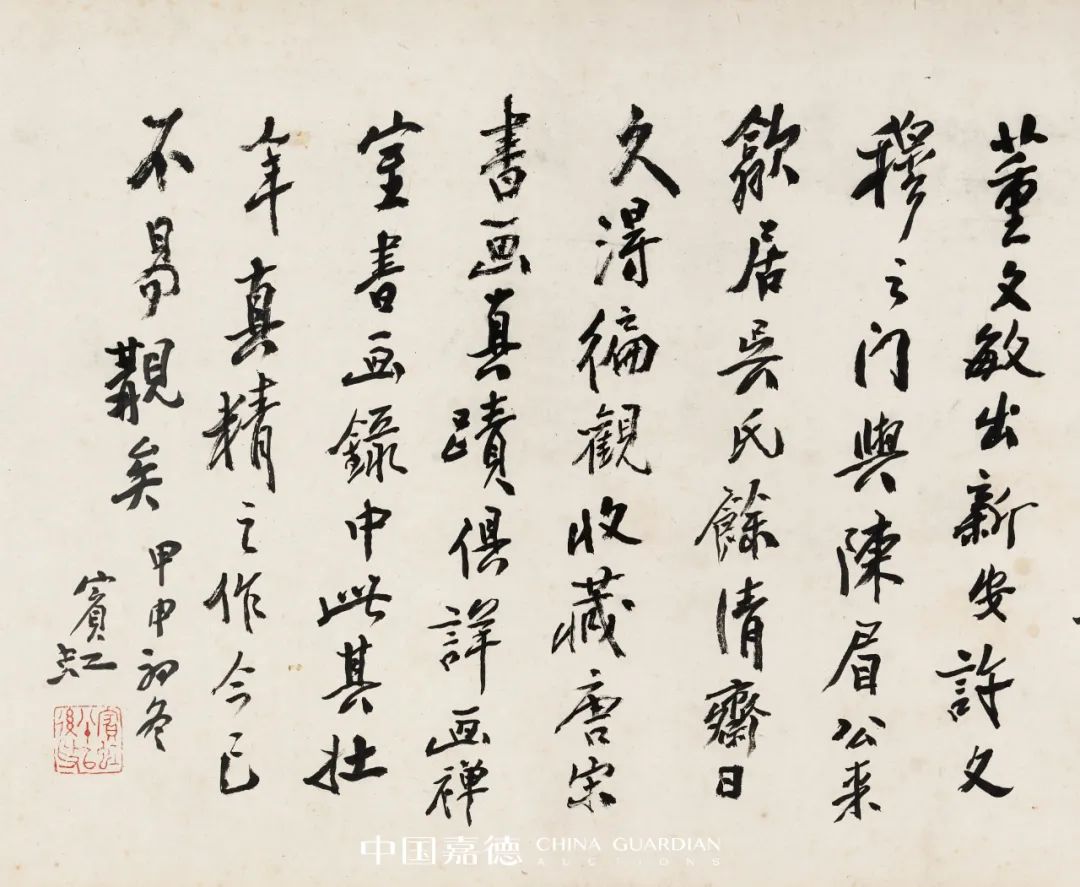 董文敏出新安許文
穆之门與陳眉公来
歙居吴氏餘清齋日
久得徧觀收藏唐宋
書画真蹟俱詳画禅
室書画錄中此其壮
年真精之作今已
不易觏矣甲申初冬
賓虹
中国嘉德 CHINA GUARDIAN
AUCTIONS